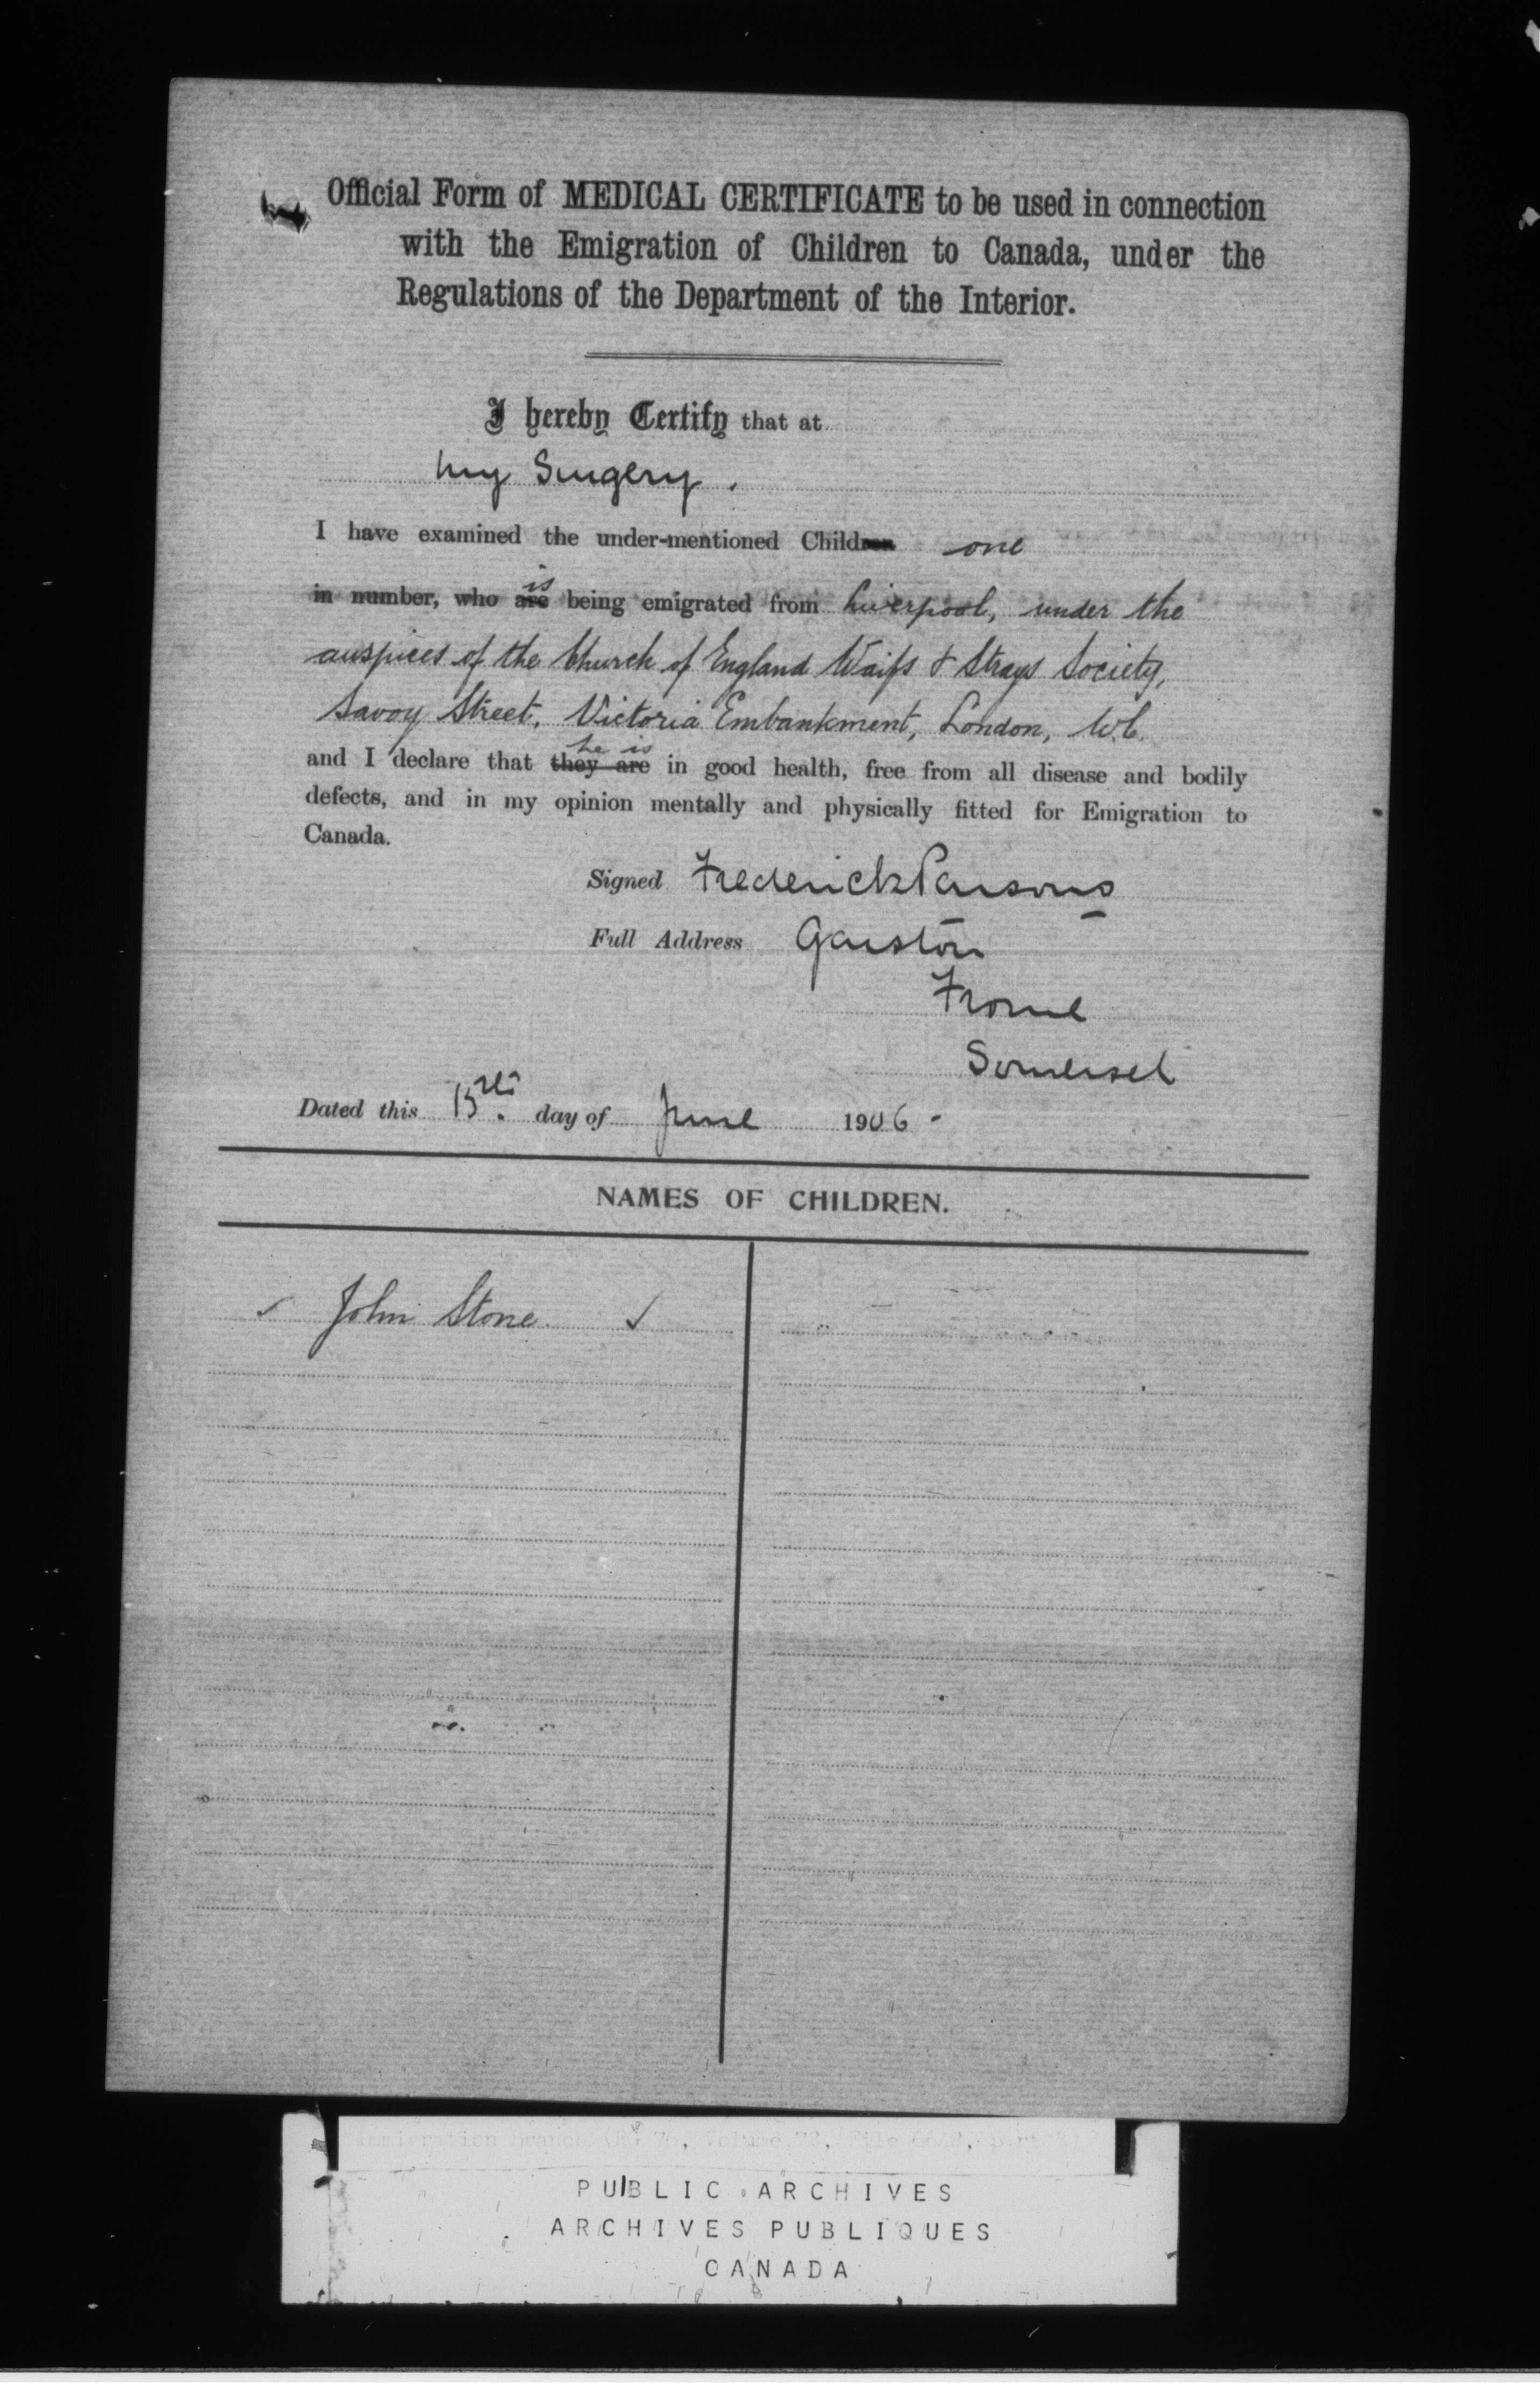 Official Form of MEDICAL CERTIFICATE to be used in connection
with the Emigration of Children to Canada, under the
Regulations of the Department of the Interior.
I hereby Certify that at
my Surgery.
I have examined the under-mentioned Children one
in number, who are is being emigrated from Liverpool, under the
auspices of the Church of England Waifs & Strays Society,
Savoy Street, Victoria Embankment, London, W.C.
he is
and I declare that they are in good health, free from all disease and bodily
defects, and in my opinion mentally and physically fitted for Emigration to
Canada.
Signed Frederick Parsons
Full Address Garston
Frome
Somerset
Dated this day of June 1906 -
NAMES OF CHILDREN.
✓ John Stone. ✓
Immigration Branch (RG 76, Volume 73, File
PUBLIC ARCHIVES
ARCHIVES PUBLIQUES
CANADA